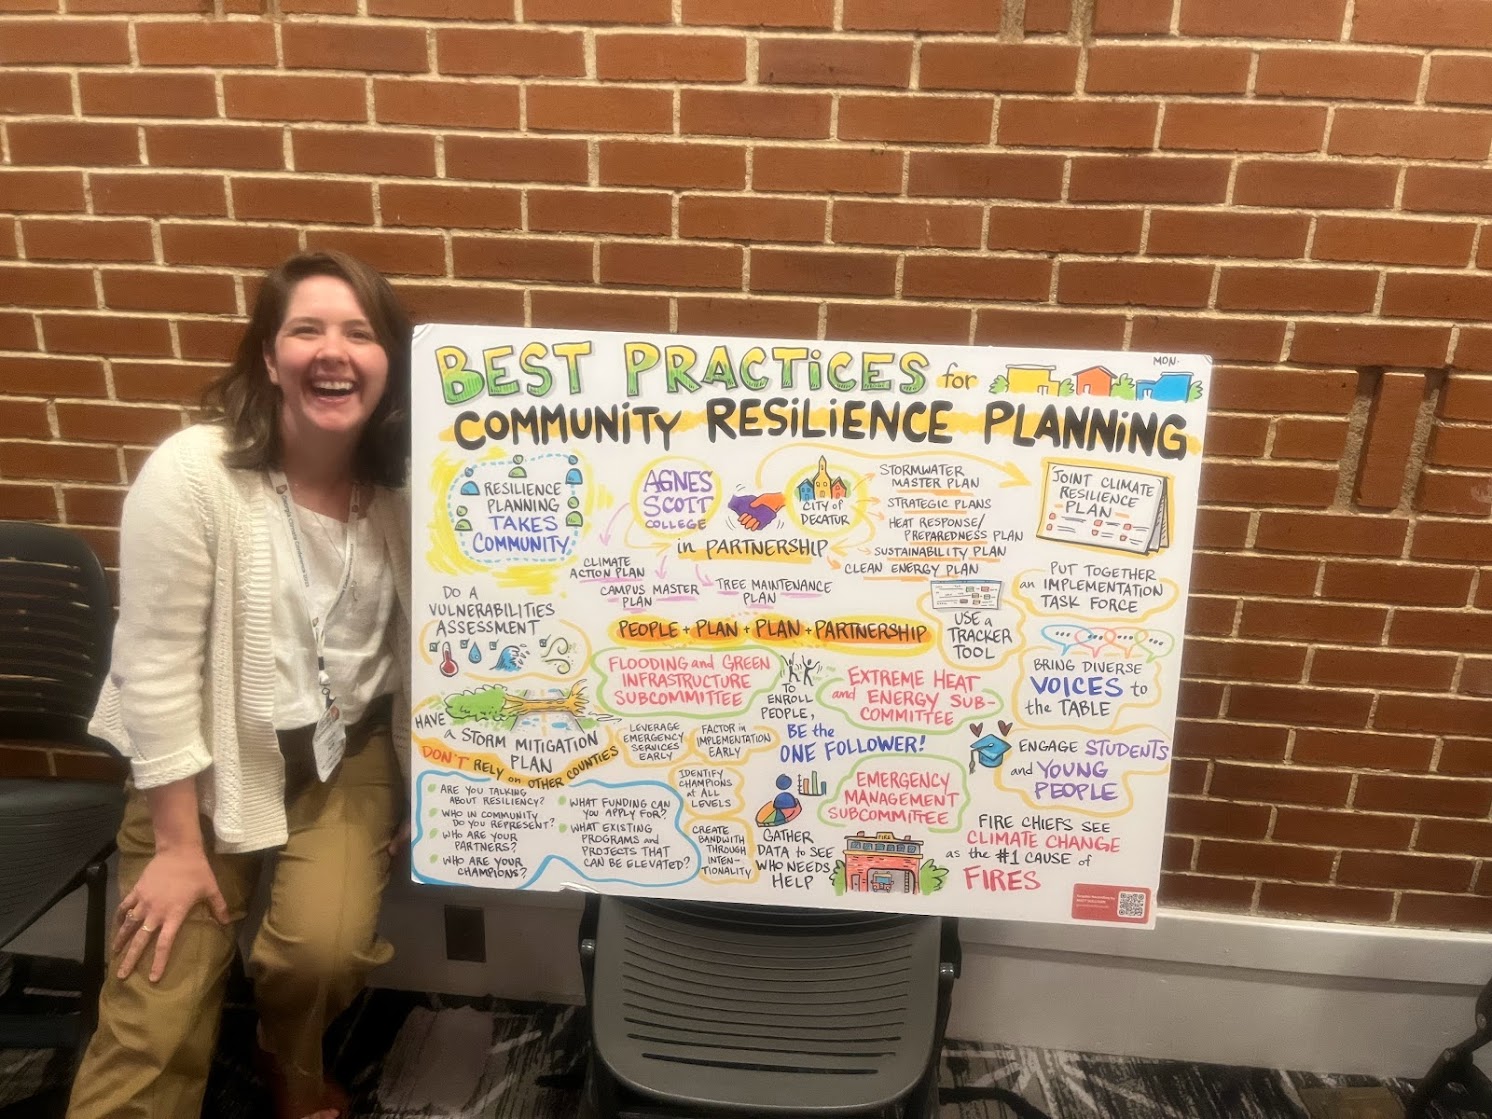 BEST PRACTiCES for
MON.
COMMUNiTY RESiLiENCE PLANNiNG
RESiLiENCE
PLANNING
TAKES
COMMUNITY
AGNES
SCOTT
COLLEGE
in PARTNERSHIP
CITY of
DECATUR
STORMWATER
MASTER PLAN
STRATEGIC PLANS
HEAT RESPONSE/
PREPAREDNESS PLAN
SUSTAINABILITY PLAN
CLEAN ENERGY PLAN
JOINT CLIMATE
RESILIENCE
PLAN
CLIMATE
ACTION PLAN
CAMPUS MASTER
PLAN
TREE MAINTENANCE
PLAN
PEOPLE + PLAN + PLAN + PARTNERSHIP
USE a
TRACKER
TOOL
PUT TOGETHER
an IMPLEMENTATION
TASK FORCE
DO A
VULNERABILITIES
ASSESSMENT
FLOODING and GREEN
INFRASTRUCTURE
SUBCOMMITTEE
TO
ENROLL
PEOPLE,
BE the
ONE FOLLOWER!
EXTREME HEAT
and ENERGY SUB-
COMMITTEE
BRING DIVERSE
VOICES to
the TABLE
HAVE
a STORM MITIGATION
PLAN
DON'T RELY on OTHER COUNTIES
LEVERAGE
EMERGENCY
SERVICES
EARLY
FACTOR in
IMPLEMENTATION
EARLY
IDENTIFY
CHAMPIONS
at ALL
LEVELS
CREATE
BANDWITH
THROUGH
INTEN-
TIONALITY
GATHER
DATA to SEE
WHO NEEDS
HELP
EMERGENCY
MANAGEMENT
SUBCOMMITTEE
ENGAGE STUDENTS
and YOUNG
PEOPLE
ARE YOU TALKING
ABOUT RESILIENCY?
WHO IN COMMUNITY
DO YOU REPRESENT?
WHO ARE YOUR
PARTNERS?
WHO ARE YOUR
CHAMPIONS?
WHAT FUNDING CAN
YOU APPLY FOR?
WHAT EXISTING
PROGRAMS and
PROJECTS THAT
CAN BE ELEVATED?
FIRE
FIRE CHIEFS SEE
CLIMATE CHANGE
as the #1 CAUSE of
FIRES